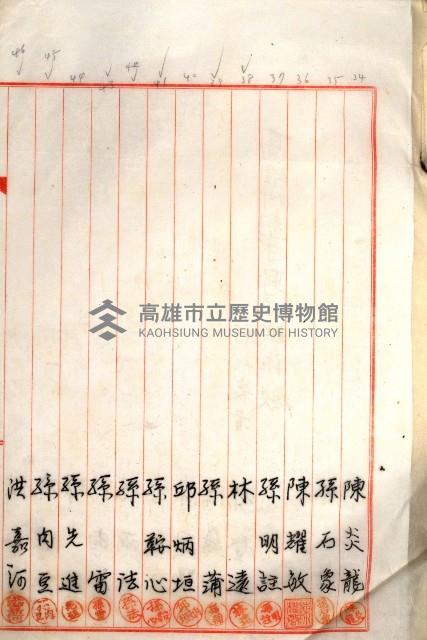 34
35
36
37
38
39
40
41
42
43
44
45
46
高雄市立歷史博物館
KAOHSIUNG MUSEUM OF HISTORY
陳炎龍
孫石象
陳耀敏
孫明註
林遠
孫蒲
邱炳垣
孫鞍心
孫法
孫雷
孫先進
孫內豆
洪嘉河